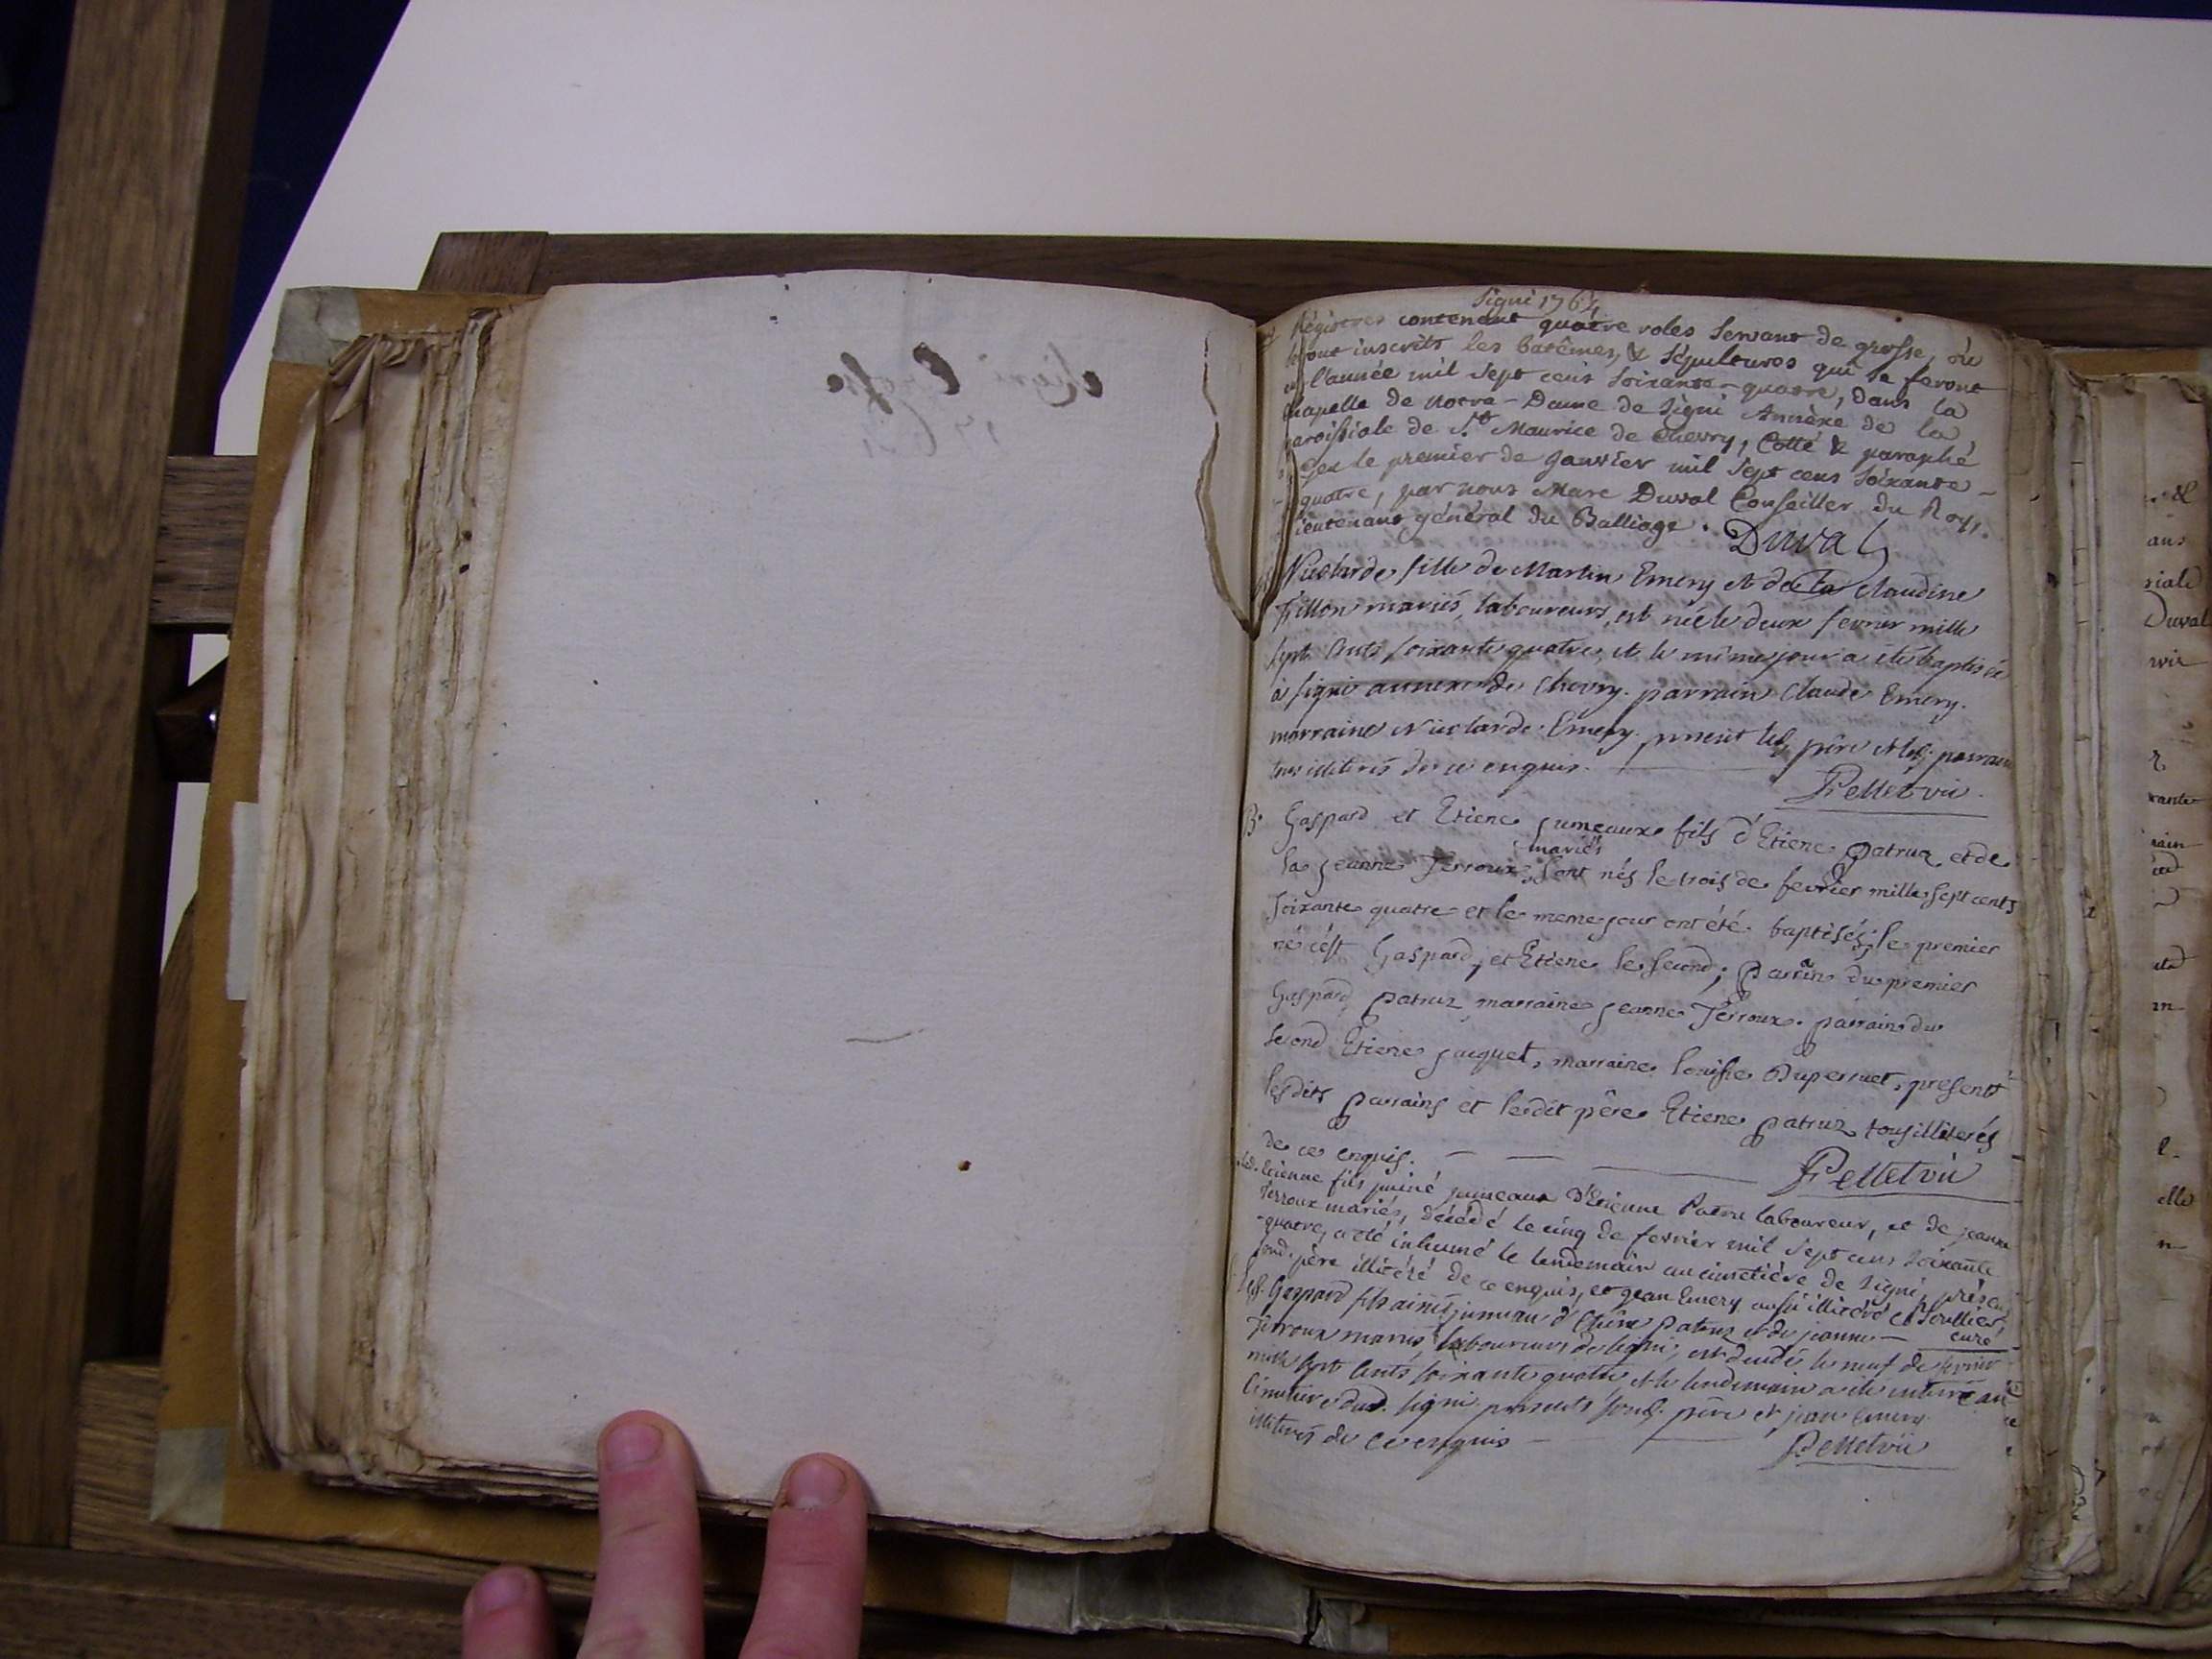 Signi 1764
Régistres contenant quatre roles servant de grosse, où
seront inscrits les batêmes, & sépultures qui se feront
en l'année mil sept cens soixante-quatre, dans la
chapelle de notre-Dame de Signi Annèxe de la
paroissiale de St. Maurice de Chevry, Cotté & paraphé
Gex le premier de Janvier mil sept cens soixante-
quatre, par nous Marc Duval Conseiller du Roy,
lieutenant général du Balliage. Duval
Nicolarde fille de Martin Emery et de la Claudine
Fillon mariés, laboureurs, est née le deux fevrier mille
sept Cents soixante quatre, et le même jour a été baptisée
à signi annexe de Chevry. parrain Claude Emery.
marraine Nicolarde Emery. present led. père et led. parrain
tous illiterés de ce enquis. Pellet vic.
B. Gaspard et Etiene jumeaux fils d'Etiene patruz et de
mariés
la jeanne Terroux, sont nés le trois de fevrier mille sept cents
soixante quatre et le meme jour ont été baptisés; le premier
né c'est Gaspard, et Etiene le second; parrain du premier
Gaspard patruz marraine jeanne Terroux. parrain du
second Etiene jacquet, marraine louise Duperruet, present
lesdits parrains et ledit père Etiene patruz tous illiterés
de ce enquis. Pellet vic
Etienne fils puiné jumeaux d'Etienne Patru laboureur, et de jeanne
Terroux mariés, décédé le cinq de fevrier mil sept cens soixante
quatre, a été inhumé le lendemain au cimetière de Signi, présens
sond. père illitéré de ce enquis, et jean Emery aussi illitéré
curé
Gaspard fils ainé jumeau d'Etiene patruz et de jeanne
Terroux mariés laboureurs de signi, est decedé le neuf de fevrier
mille sept Cents soixante quatre et le lendemain a été enterré au
Cimetiere dud. signi. presents sond. père et jean Emery
illiterés de ce enquis Pellet vic
ans
riale
Duval
rante
elle